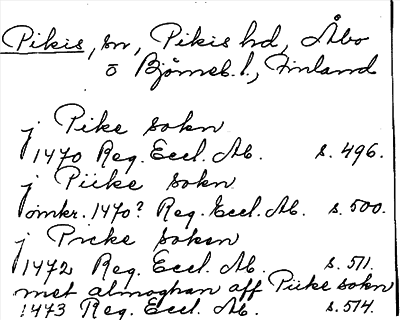 Pikis, sn, Pikis hd, Åbo
o Björneb. l., Finland
j Pike sokn
1470 Reg. Eccl. Ab. s. 496.
j Piike sokn
omkr. 1470? Reg. Eccl. Ab. s. 500.
j Picke soken
1472 Reg. Eccl. Ab. s. 511.
met almoghan aff Piike sokn
1473 Reg. Eccl. Ab. s. 514.